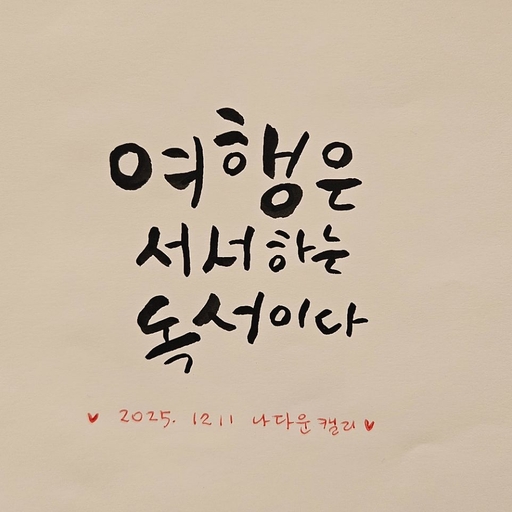 여행은
서서하는
독서이다
♥ 2025. 12 11 나다운캘리 ♥